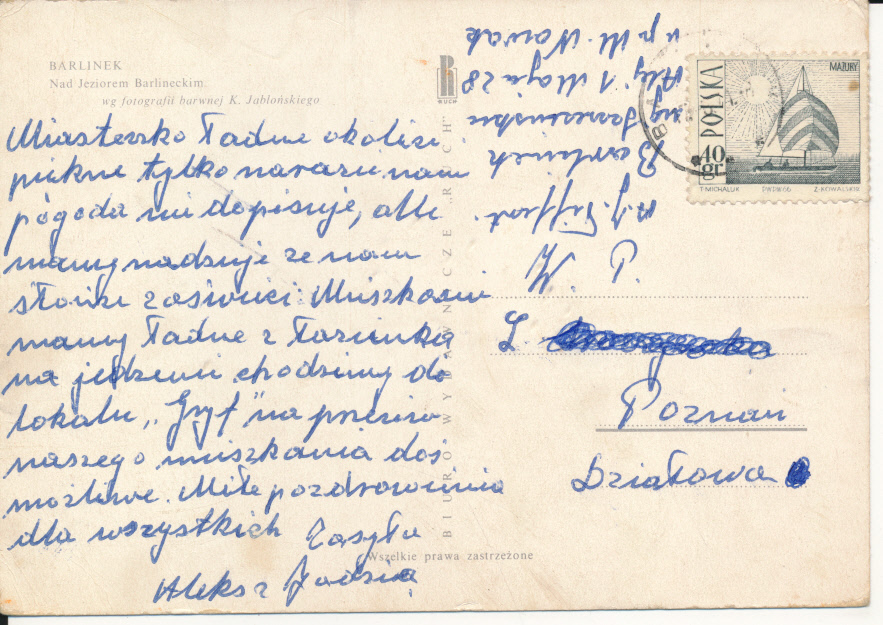 BARLINEK
Nad Jeziorem Barlineckim.
wg fotografii barwnej K. Jabłońskiego
Miasteczko ładne okolice
piękne tylko narazie nam
pogoda nie dopisuje, ale
mamy nadzieje ze nam
słońce zaświeci. Mieszkanie
mamy ładne z łazienką
na jedzenie chodzimy do
lokalu „Gryf" na przeciw
naszego mieszkania dość
możliwe. Miłe pozdrowienia
dla wszystkich Zasyła
Aleks z Jadzią
RUCH
BIURO WYDAWNICZE „RUCH"
Wszelkie prawa zastrzeżone
Barlinek
Alej 1 Maja 28
u p. M. Nowak
POLSKA
MAZURY
40 gr.
T. MICHALUK PWPW 66 Z. KOWALSKI
W. P.
L.
Poznań
Działowa